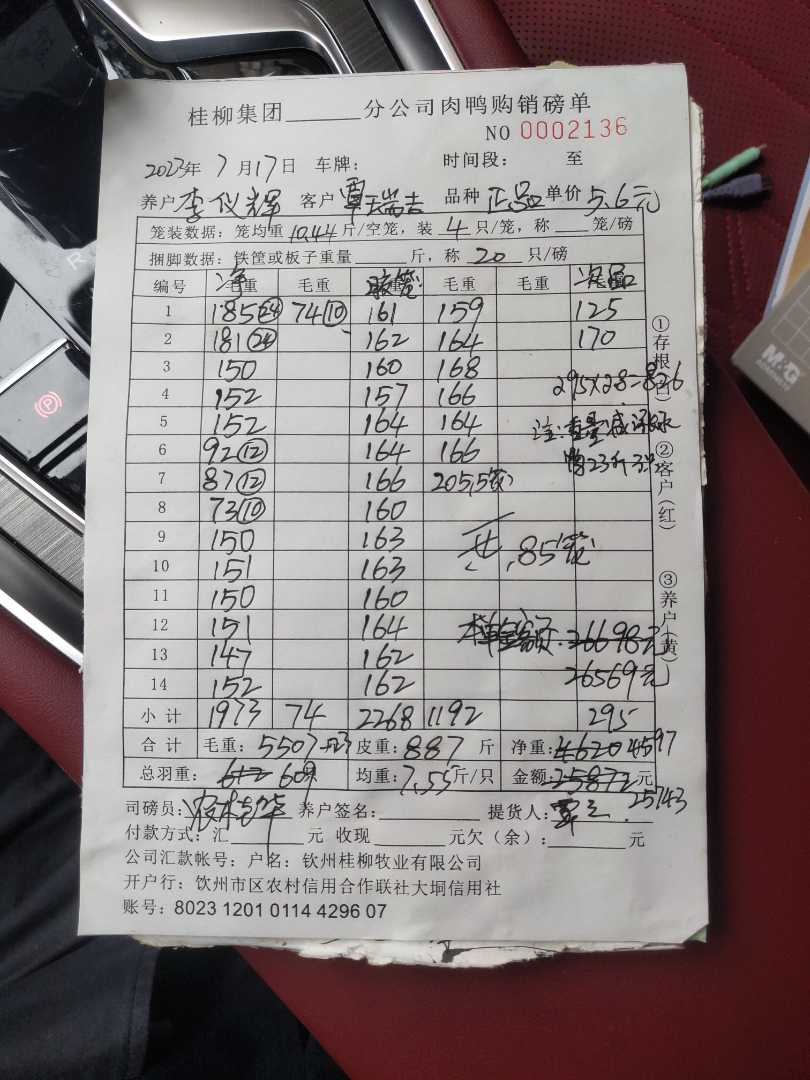 桂柳集团______分公司肉鸭购销磅单
NO 0002136
2023年 7月17日 车牌: 时间段: 至
养户 李仪辉 客户 覃瑞吉 品种 正品 单价 5.6元
笼装数据: 笼均重 10.44 斤/空笼, 装 4 只/笼, 称___笼/磅
捆脚数据: 铁筐或板子重量______斤, 称 20 只/磅
编号 净重 毛重 胶笼 毛重 毛重 次品
1 185 24 74 10 161 159 125
2 181 24 162 164 170
3 150 160 168
4 152 157 166 295×2.8=826
5 152 164 164
6 92 12 164 166
7 87 12 166 205,5笼
8 73 10 160
9 150 163 共,85笼
10 151 163
11 150 160
12 151 164 26698元
13 147 162
14 152 162 26569元
小计 1973 74 2268 1192 295
合计 毛重: 5507-23 皮重: 887 斤 净重: 4620 4597
总羽重: 612 609 均重: 7.55斤/只 金额: 25872元
25743
司磅员: 养户签名:________ 提货人:
付款方式: 汇______元 收现______元欠(余):______元
公司汇款帐号: 户名: 钦州桂柳牧业有限公司
开户行: 饮州市区农村信用合作联社大垌信用社
账号: 8023 1201 0114 4296 07
①存根(白) ②客户(红) ③养户(黄)
M&G